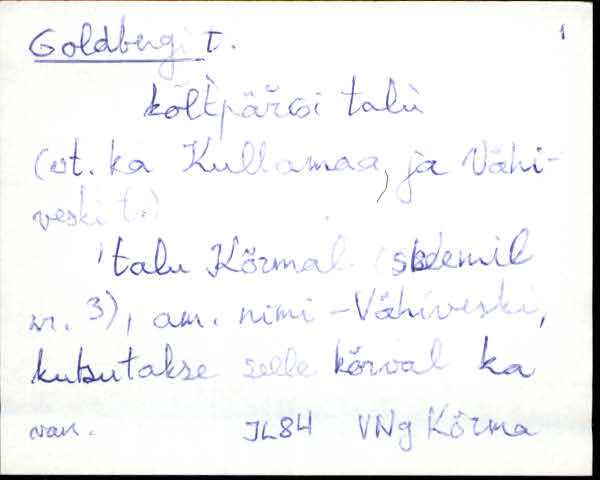 Goldbergi T. 1
(vt. ka Kullamaa, ja Vähi-
veski t.)
talu Kõrmal (skeemil
nr. 3), am. nimi - Vähiveski,
kutsutakse selle kõrval ka
van. JL84 VNg Kõrma